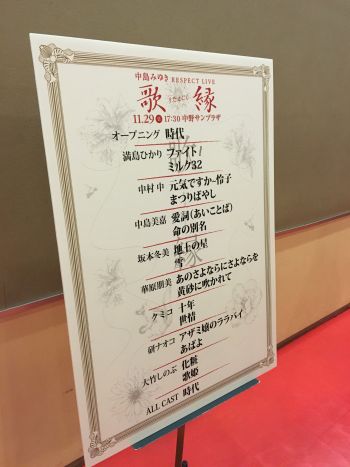 中島みゆき RESPECT LIVE
歌縁
うたえにし
11.29 17:30 中野サンプラザ
オープニング 時代
満島ひかり ファイト!
ミルク32
中村 中 元気ですか~怜子
まつりばやし
中島美嘉 愛詞(あいことば)
命の別名
坂本冬美 地上の星
雪
華原朋美 あのさよならにさよならを
黄砂に吹かれて
クミコ 十年
世情
研ナオコ アザミ嬢のララバイ
あばよ
大竹しのぶ 化粧
歌姫
ALL CAST 時代